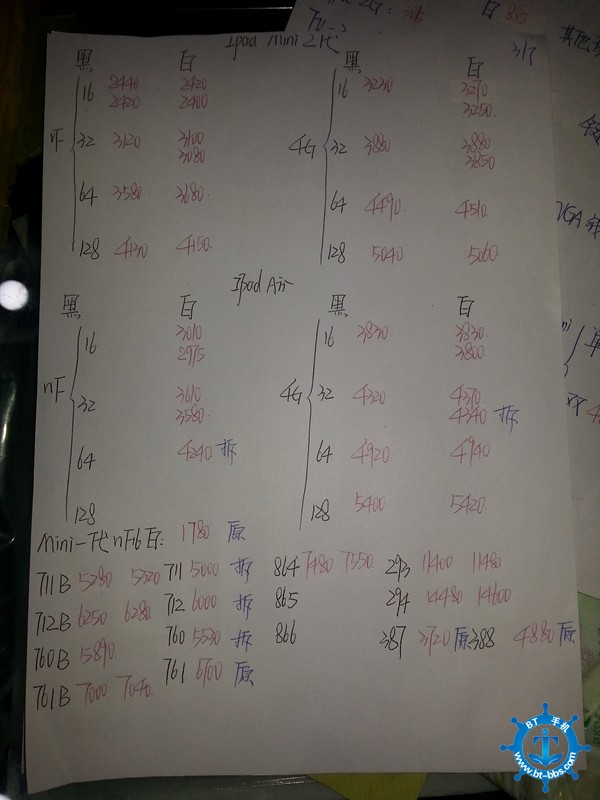 2G: 305 白 885
Ipad Mini 2代
3/3
其他
黑 白 黑 白
16 2440 2420 16 3230 3270
2420 2400 3250
nF 32 3120 3100 4G 32 3880 3880
3080 3850
64 3580 3680 64 4490 4510
128 4130 4150 128 5040 5060
Ipad Air
黑 白 黑 白
16 3010 16 3830 3830
2975 3800
nF 32 3610 4G 32 4320 4370
3580 4340 拆
64 4240 拆 64 4920 4940
128 128 5400 5420
Mini一代 nF16白: 1780 原
711B 5280 5320 711 5000 拆 864 7480 7550 293 11400 11480
712B 6250 6280 712 6000 拆 865 294 14480 14600
760B 5890 760 5530 拆 866 387 3720 原 388 4880 原
761B 7000 7040 761 6700 原
BT 手机
www.bt-bbs.com